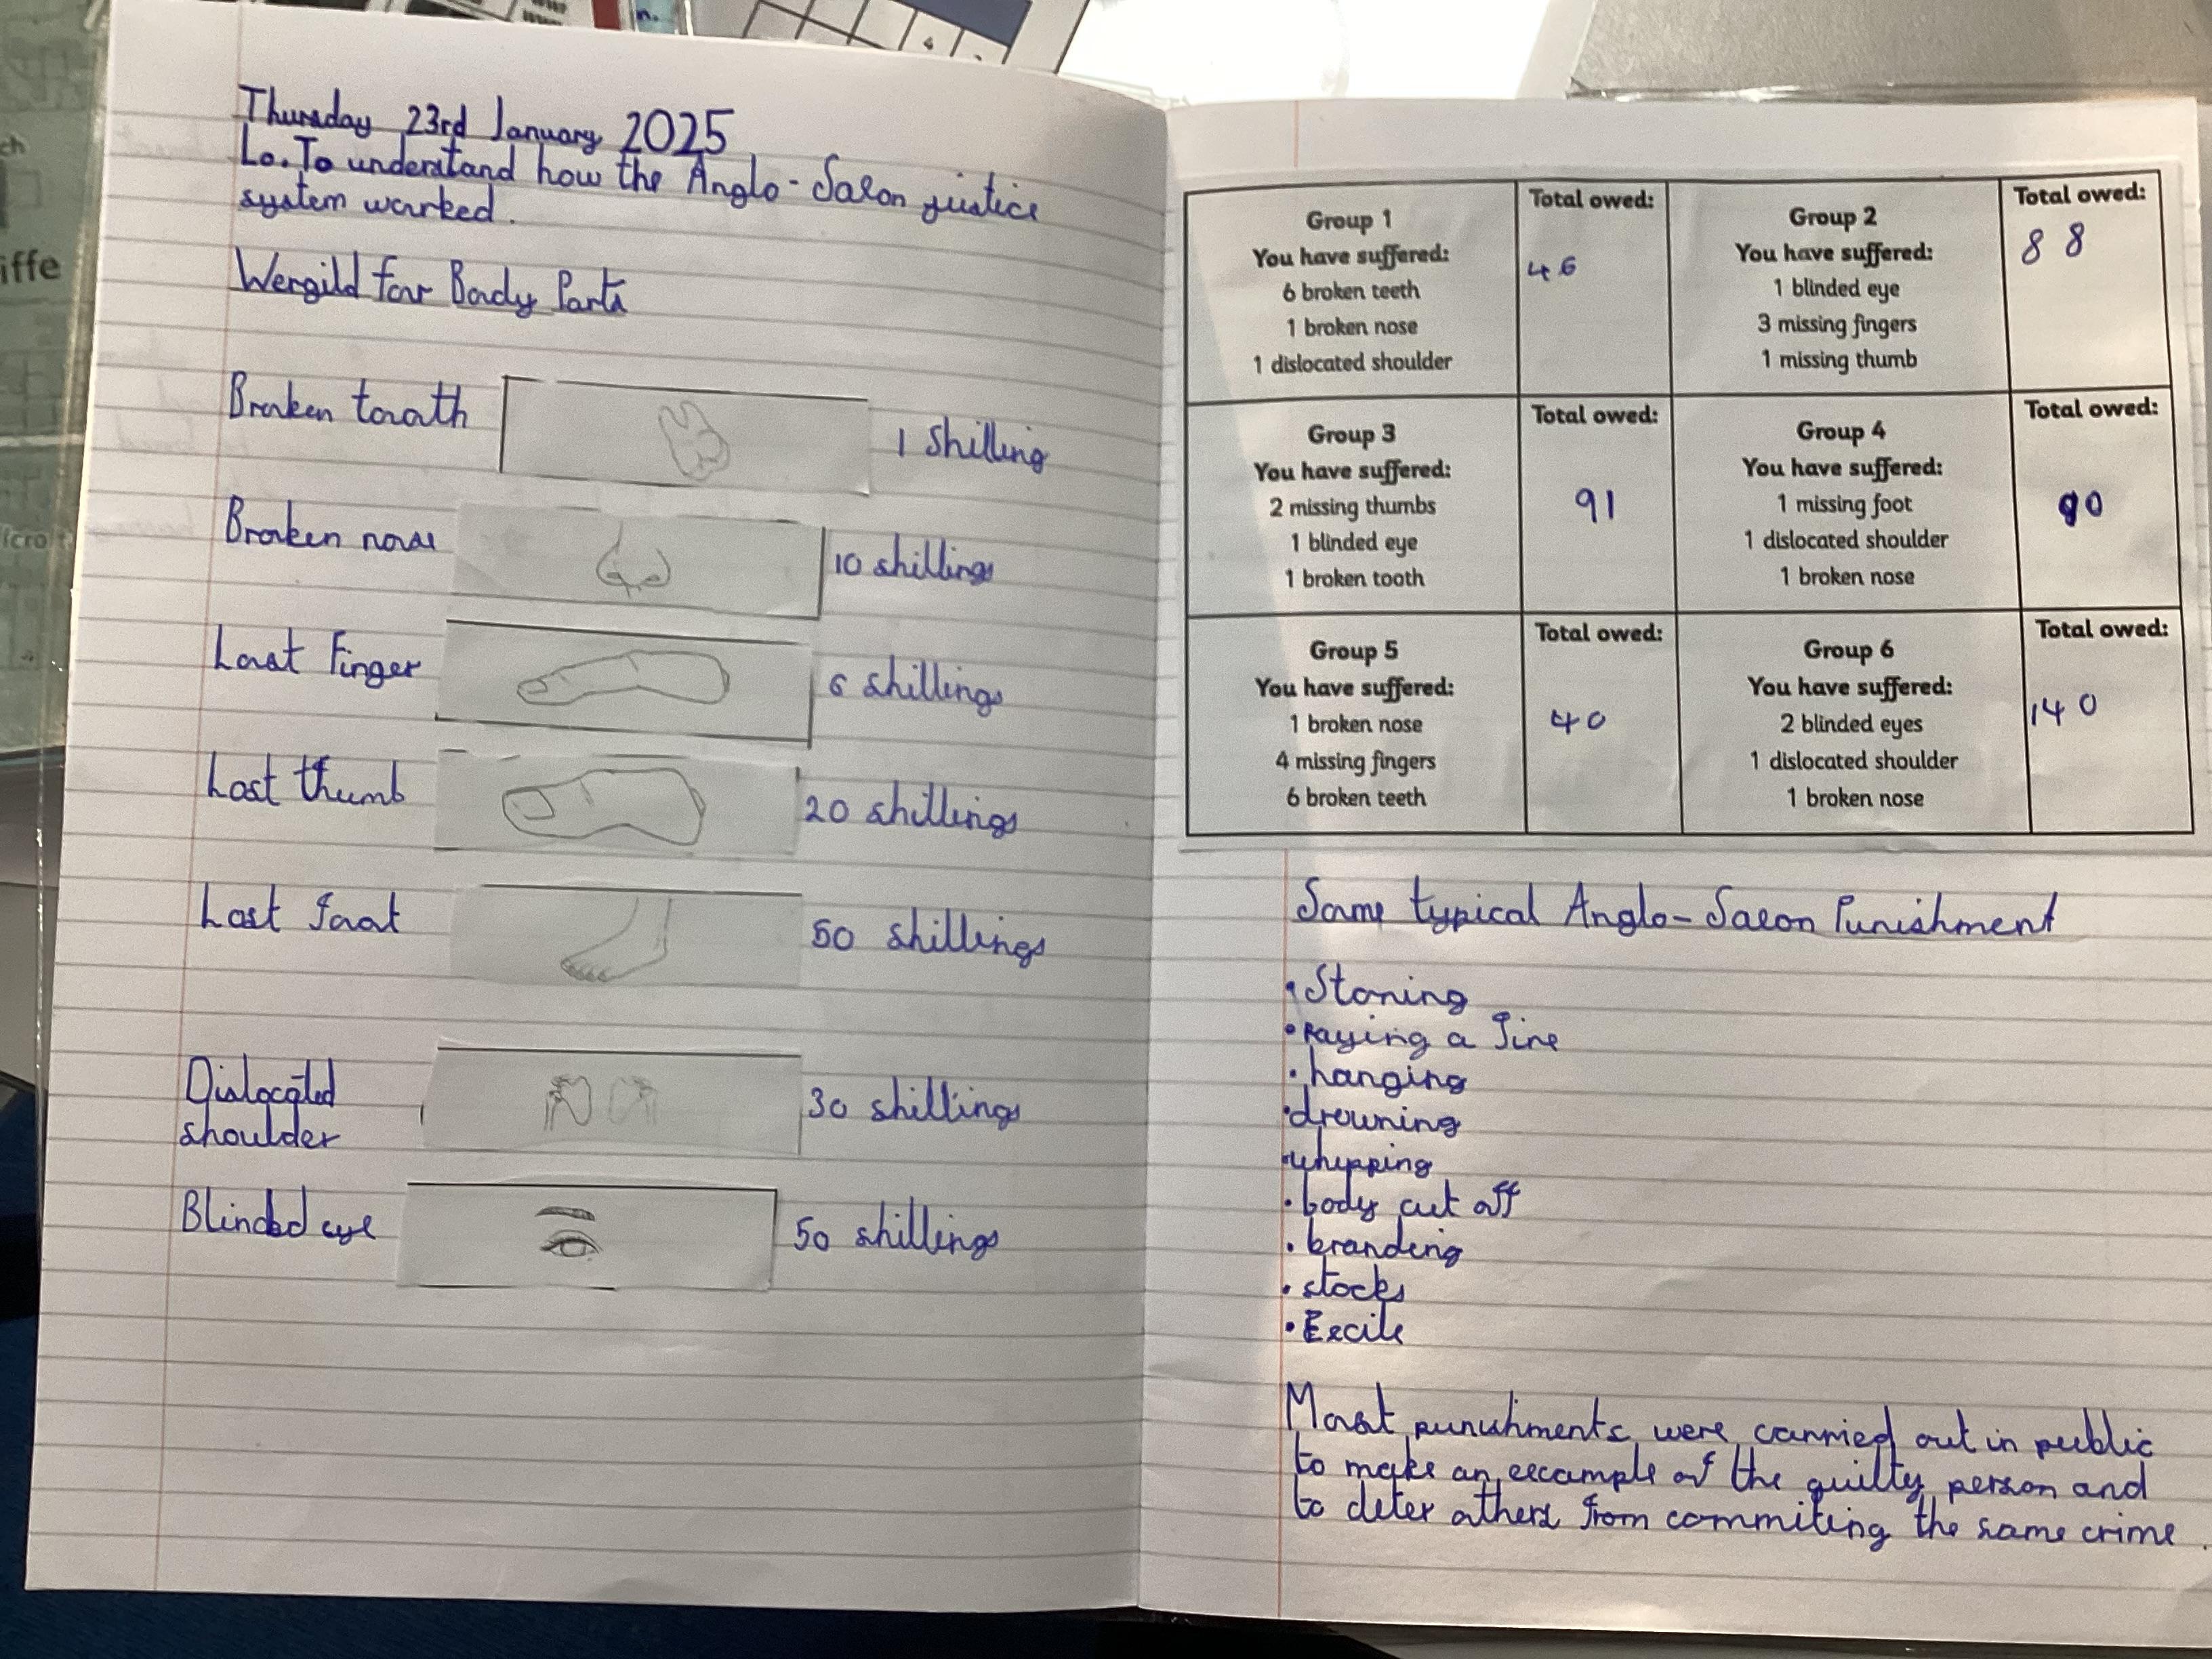 Thursday 23rd January 2025
Lo. To understand how the Anglo-Saxon justice
system worked.
Wergild for Body Parts
Broken tooth
1 shilling
Broken nose
10 shillings
Lost Finger
6 shillings
Lost thumb
20 shillings
Lost foot
50 shillings
Dislocated
shoulder
30 shillings
Blinded eye
50 shillings
Group 1
You have suffered:
6 broken teeth
1 broken nose
1 dislocated shoulder
Total owed:
46
Group 2
You have suffered:
1 blinded eye
3 missing fingers
1 missing thumb
Total owed:
88
Group 3
You have suffered:
2 missing thumbs
1 blinded eye
1 broken tooth
Total owed:
91
Group 4
You have suffered:
1 missing foot
1 dislocated shoulder
1 broken nose
Total owed:
90
Group 5
You have suffered:
1 broken nose
4 missing fingers
6 broken teeth
Total owed:
40
Group 6
You have suffered:
2 blinded eyes
1 dislocated shoulder
1 broken nose
Total owed:
140
Some typical Anglo-Saxon Punishment
• Stoning
• Paying a fine
• hanging
• drowning
• whipping
• body cut off
• branding
• stocks
• Excile
Most punishments were carried out in public
to make an example of the guilty person and
to deter others from commiting the same crime.
iffe